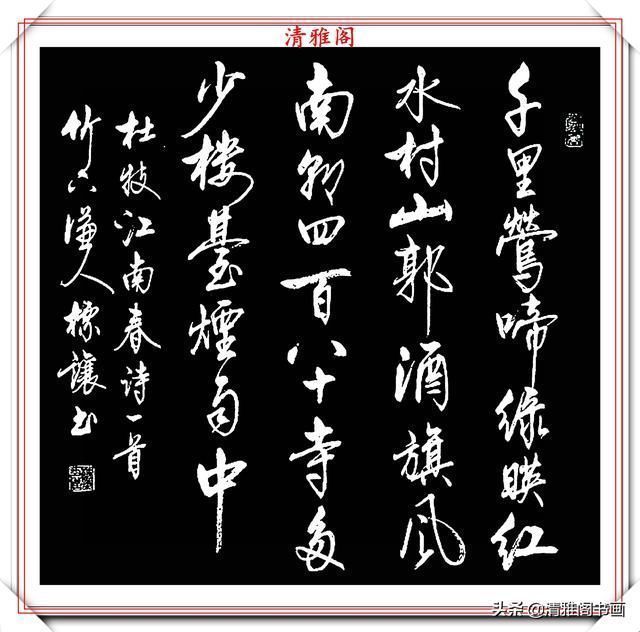 清雅阁
千里鶯啼绿暎红
水村山郭酒旗风
南朝四百八十寺多
少楼臺煙雨中
杜牧江南春诗一首
竹人讓书
头条 @清雅阁书画